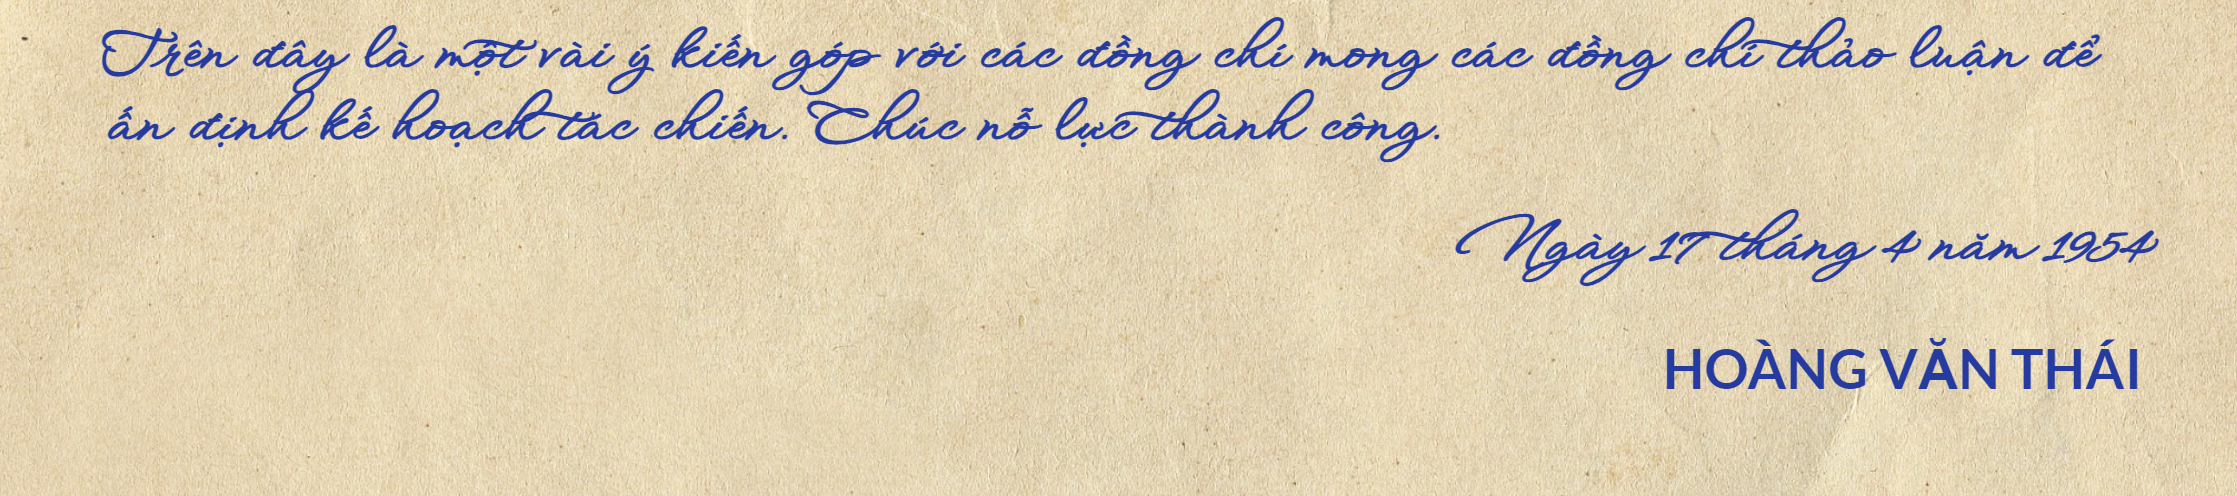 Trên đây là một vài ý kiến góp với các đồng chí mong các đồng chí thảo luận để
ấn định kế hoạch tác chiến. Chúc nỗ lực thành công.
Ngày 17 tháng 4 năm 1954
HOÀNG VĂN THÁI